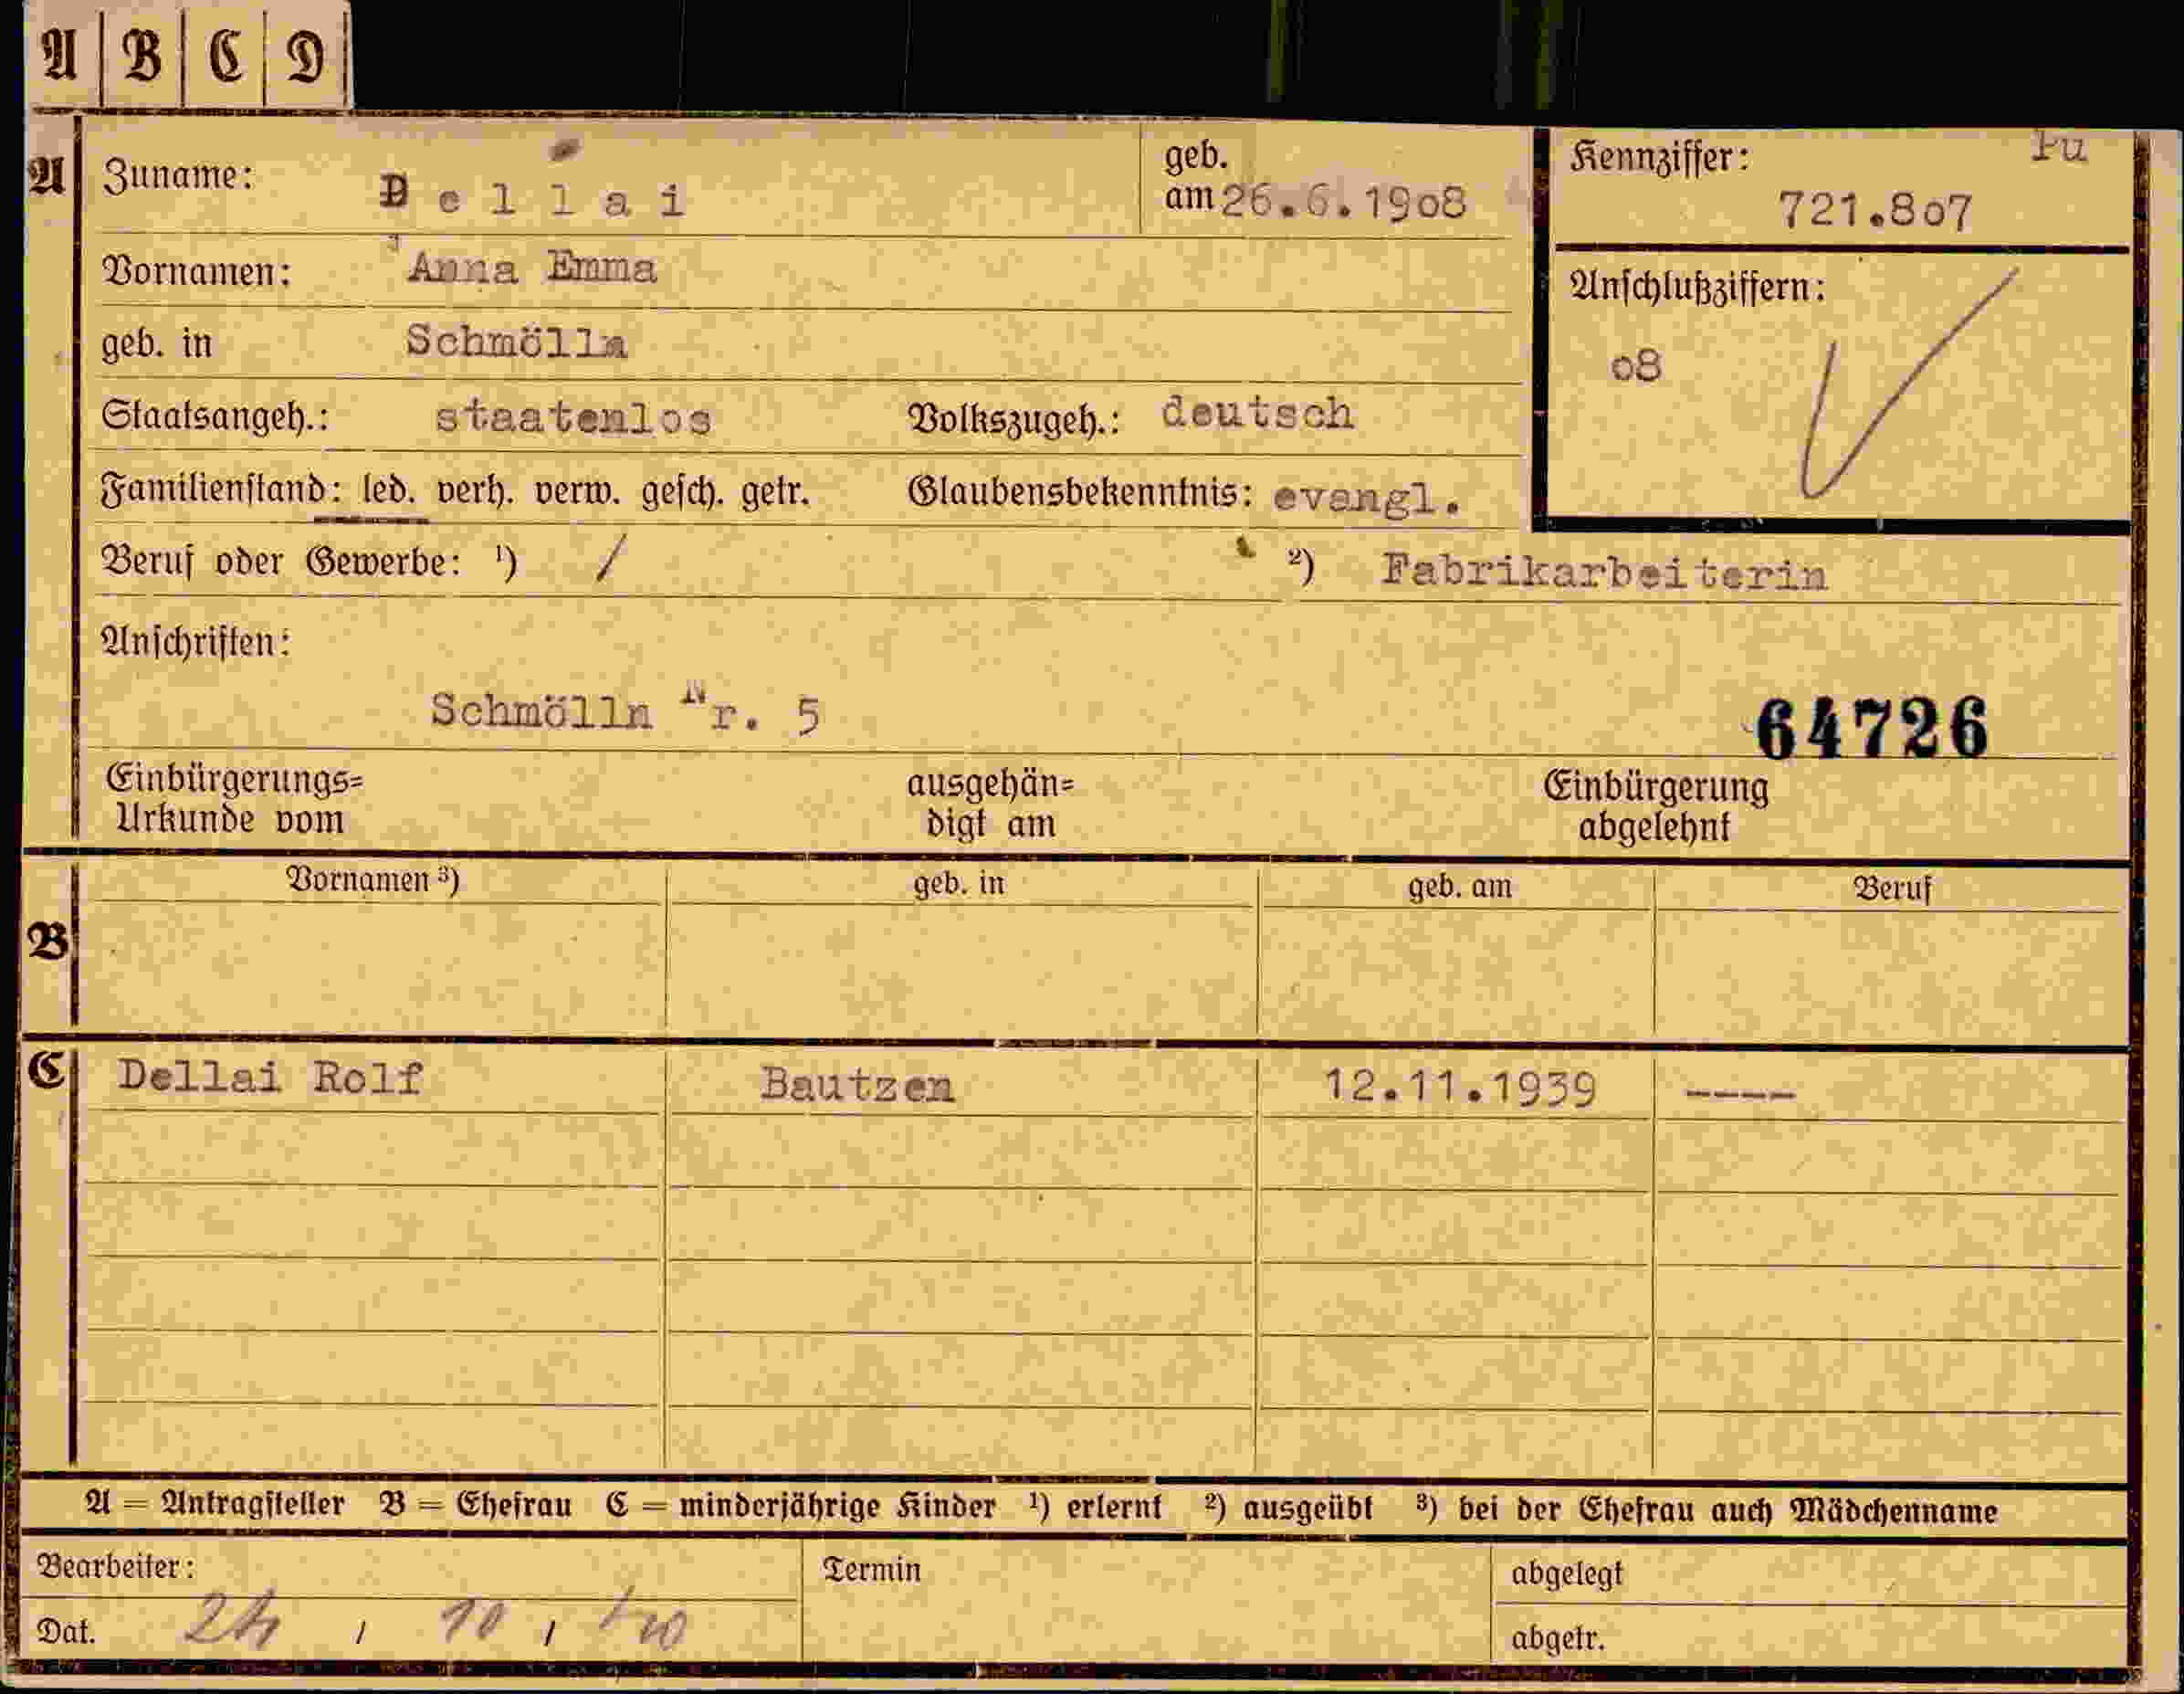 A B C D
A Zuname: Dellai geb. am 26.6.1908 Kennziffer: Pu
721.807
Vornamen: Anna Emma Anschlußziffern:
geb. in Schmölln 08
Staatsangeh.: staatenlos Volkszugeh.: deutsch
Familienstand: led. verh. verw. gesch. getr. Glaubensbekenntnis: evangl.
Beruf oder Gewerbe: ¹) / ²) Fabrikarbeiterin
Anschriften:
Schmölln Nr. 5 64726
Einbürgerungs= ausgehän= Einbürgerung
Urkunde vom digt am abgelehnt
Vornamen ³) geb. in geb. am Beruf
B
C Dellai Rolf Bautzen 12.11.1939 -----
A = Antragsteller B = Ehefrau C = minderjährige Kinder ¹) erlernt ²) ausgeübt ³) bei der Ehefrau auch Mädchenname
Bearbeiter: Termin abgelegt
Dat. 24 / 10 / 40 abgetr.